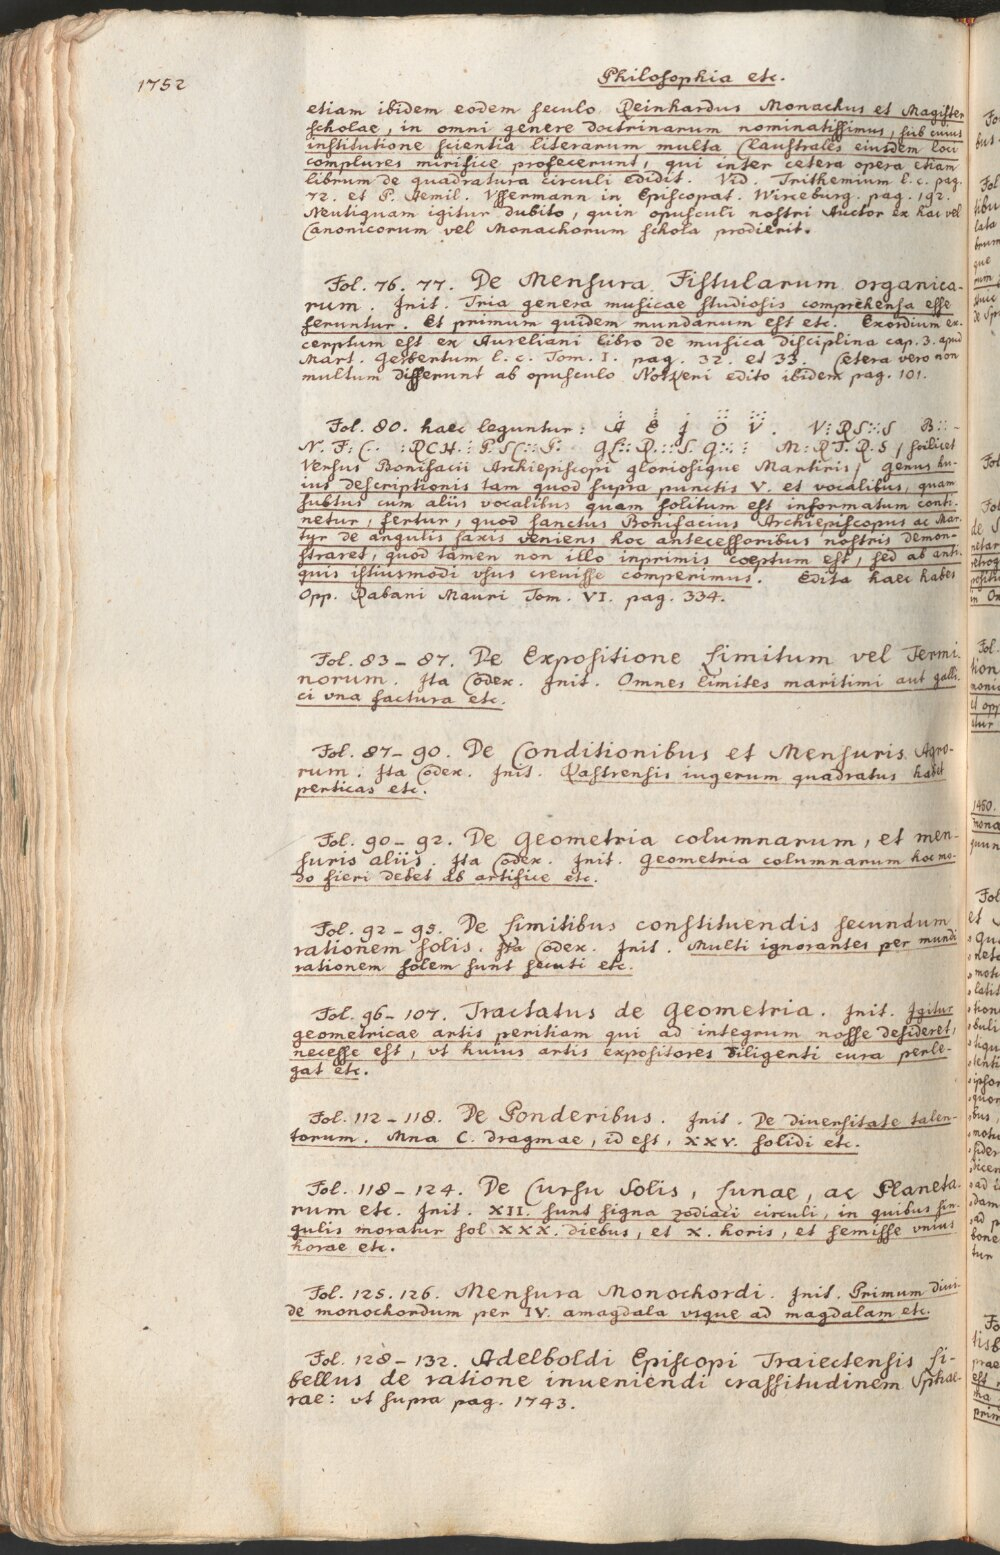 1752
Philosophia etc.
etiam ibidem eodem seculo Reinhardus Monachus et Magister
scholae, in omni genere doctrinarum nominatissimus, sub cuius
institutione scientia literarum multa Claustrales eiusdem loci
complures mirifice profecerunt, qui inter cetera opera etiam
librum de quadratura circuli edidit. Vid. Trithemium l. c. pag.
72. et P. Aemil. Vssermann in Episcopat. Wirceburg. pag. 192.
Neutiquam igitur dubito, quin opusculi nostri Auctor ex hac vel
Canonicorum vel Monachorum schola prodierit.
Fol. 76. 77. De Mensura Fistularum organica-
rum. Init. Tria genera musicae studiosis comprehensa esse
feruntur. Et primum quidem mundanum est etc. Exordium ex-
cerptum est ex Aureliani libro de musica disciplina cap. 3. apud
Mart. Gerbertum l. c. Tom. I. pag. 32. et 33. Cetera vero non
multum differunt ab opusculo Notkeri edito ibidem pag. 101.
Fol. 80. haec leguntur: A E I O V. V:RS::S B::
N. F:C:· :RCH:PSC::P· GL::R.::S. Q::: M:RT.R.S / scilicet
Versus Bonifacii Archiepiscopi gloriosique Martiris / genus hu-
ius descriptionis tam quod supra punctis V. et vocalibus, quam
subtus cum aliis vocalibus quam solitum est informatum conti-
netur, fertur, quod sanctus Bonifacius Archiepiscopus ac Mar-
tyr de angulis saxis veniens hoc antecessoribus nostris demon-
straret, quod tamen non illo inprimis coeptum est, sed ab anti-
quis istiusmodi vsus creuisse comperimus. Edita haec habes
Opp. Rabani Mauri Tom. VI. pag. 334.
Fol. 83 – 87. De Expositione Limitum vel Termi-
norum. Ita Codex. Init. Omnes limites maritimi aut galli-
ci vna factura etc.
Fol. 87 – 90. De Conditionibus et Mensuris Agro-
rum. Ita Codex. Init. Kastrensis iugerum quadratus habet
perticas etc.
Fol. 90 – 92. De Geometria columnarum, et men-
suris aliis. Ita Codex. Init. Geometria columnarum hoc mo-
do fieri debet ab artifice etc.
Fol. 92 – 95. De Limitibus constituendis secundum
rationem solis. Ita Codex. Init. Multi ignorantes per mundi
rationem solem sunt secuti etc.
Fol. 96 – 107. Tractatus de Geometria. Init. Igitur
geometricae artis peritiam qui ad integrum nosse desideret,
necesse est, vt huius artis expositores diligenti cura perle-
gat etc.
Fol. 112 – 118. De Ponderibus. Init. De diuersitate talen-
torum. Mna C. dragmae, id est, XXV. solidi etc.
Fol. 118 – 124. De Cursu Solis, Lunae, ac Planeta-
rum etc. Init. XII. sunt signa zodiaci circuli, in quibus sin-
gulis moratur sol XXX. diebus, et X. horis, et semisse vnius
horae etc.
Fol. 125. 126. Mensura Monochordi. Init. Primum diui-
de monochordum per IV. amagdala vsque ad magdalam etc.
Fol. 128 – 132. Adelboldi Episcopi Traiectensis Li-
bellus de ratione inueniendi crassitudinem Sphae-
rae: vt supra pag. 1743.